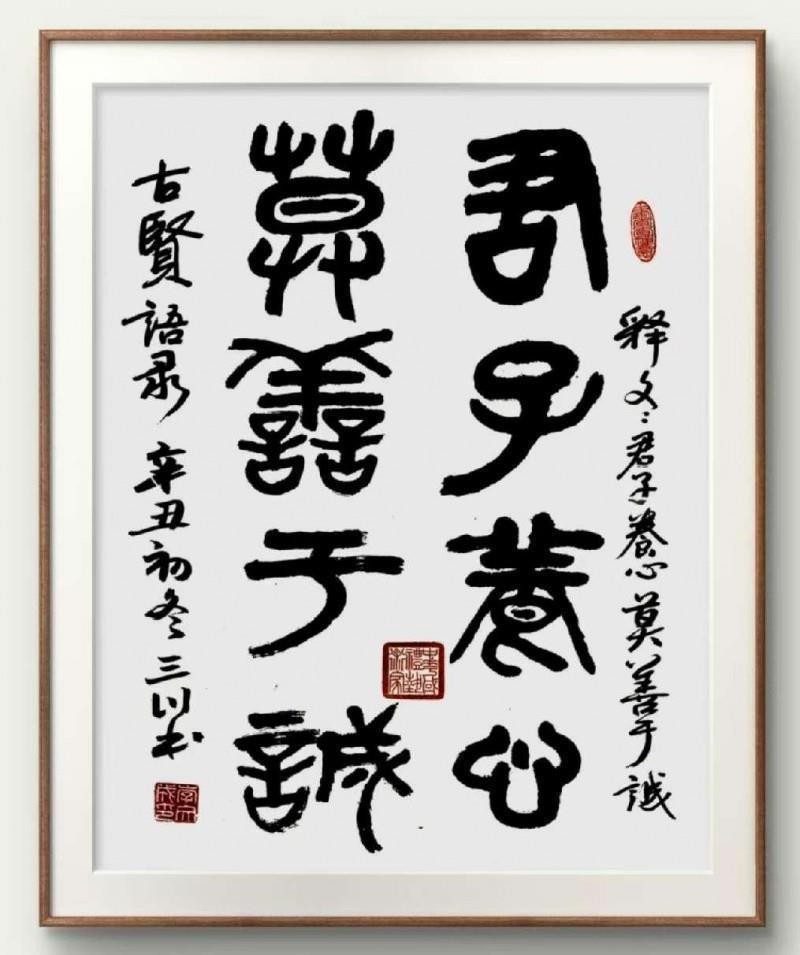 释文：君子養心莫善于誠
君子養心
莫善于誠
古賢語录 辛丑初冬 三川书